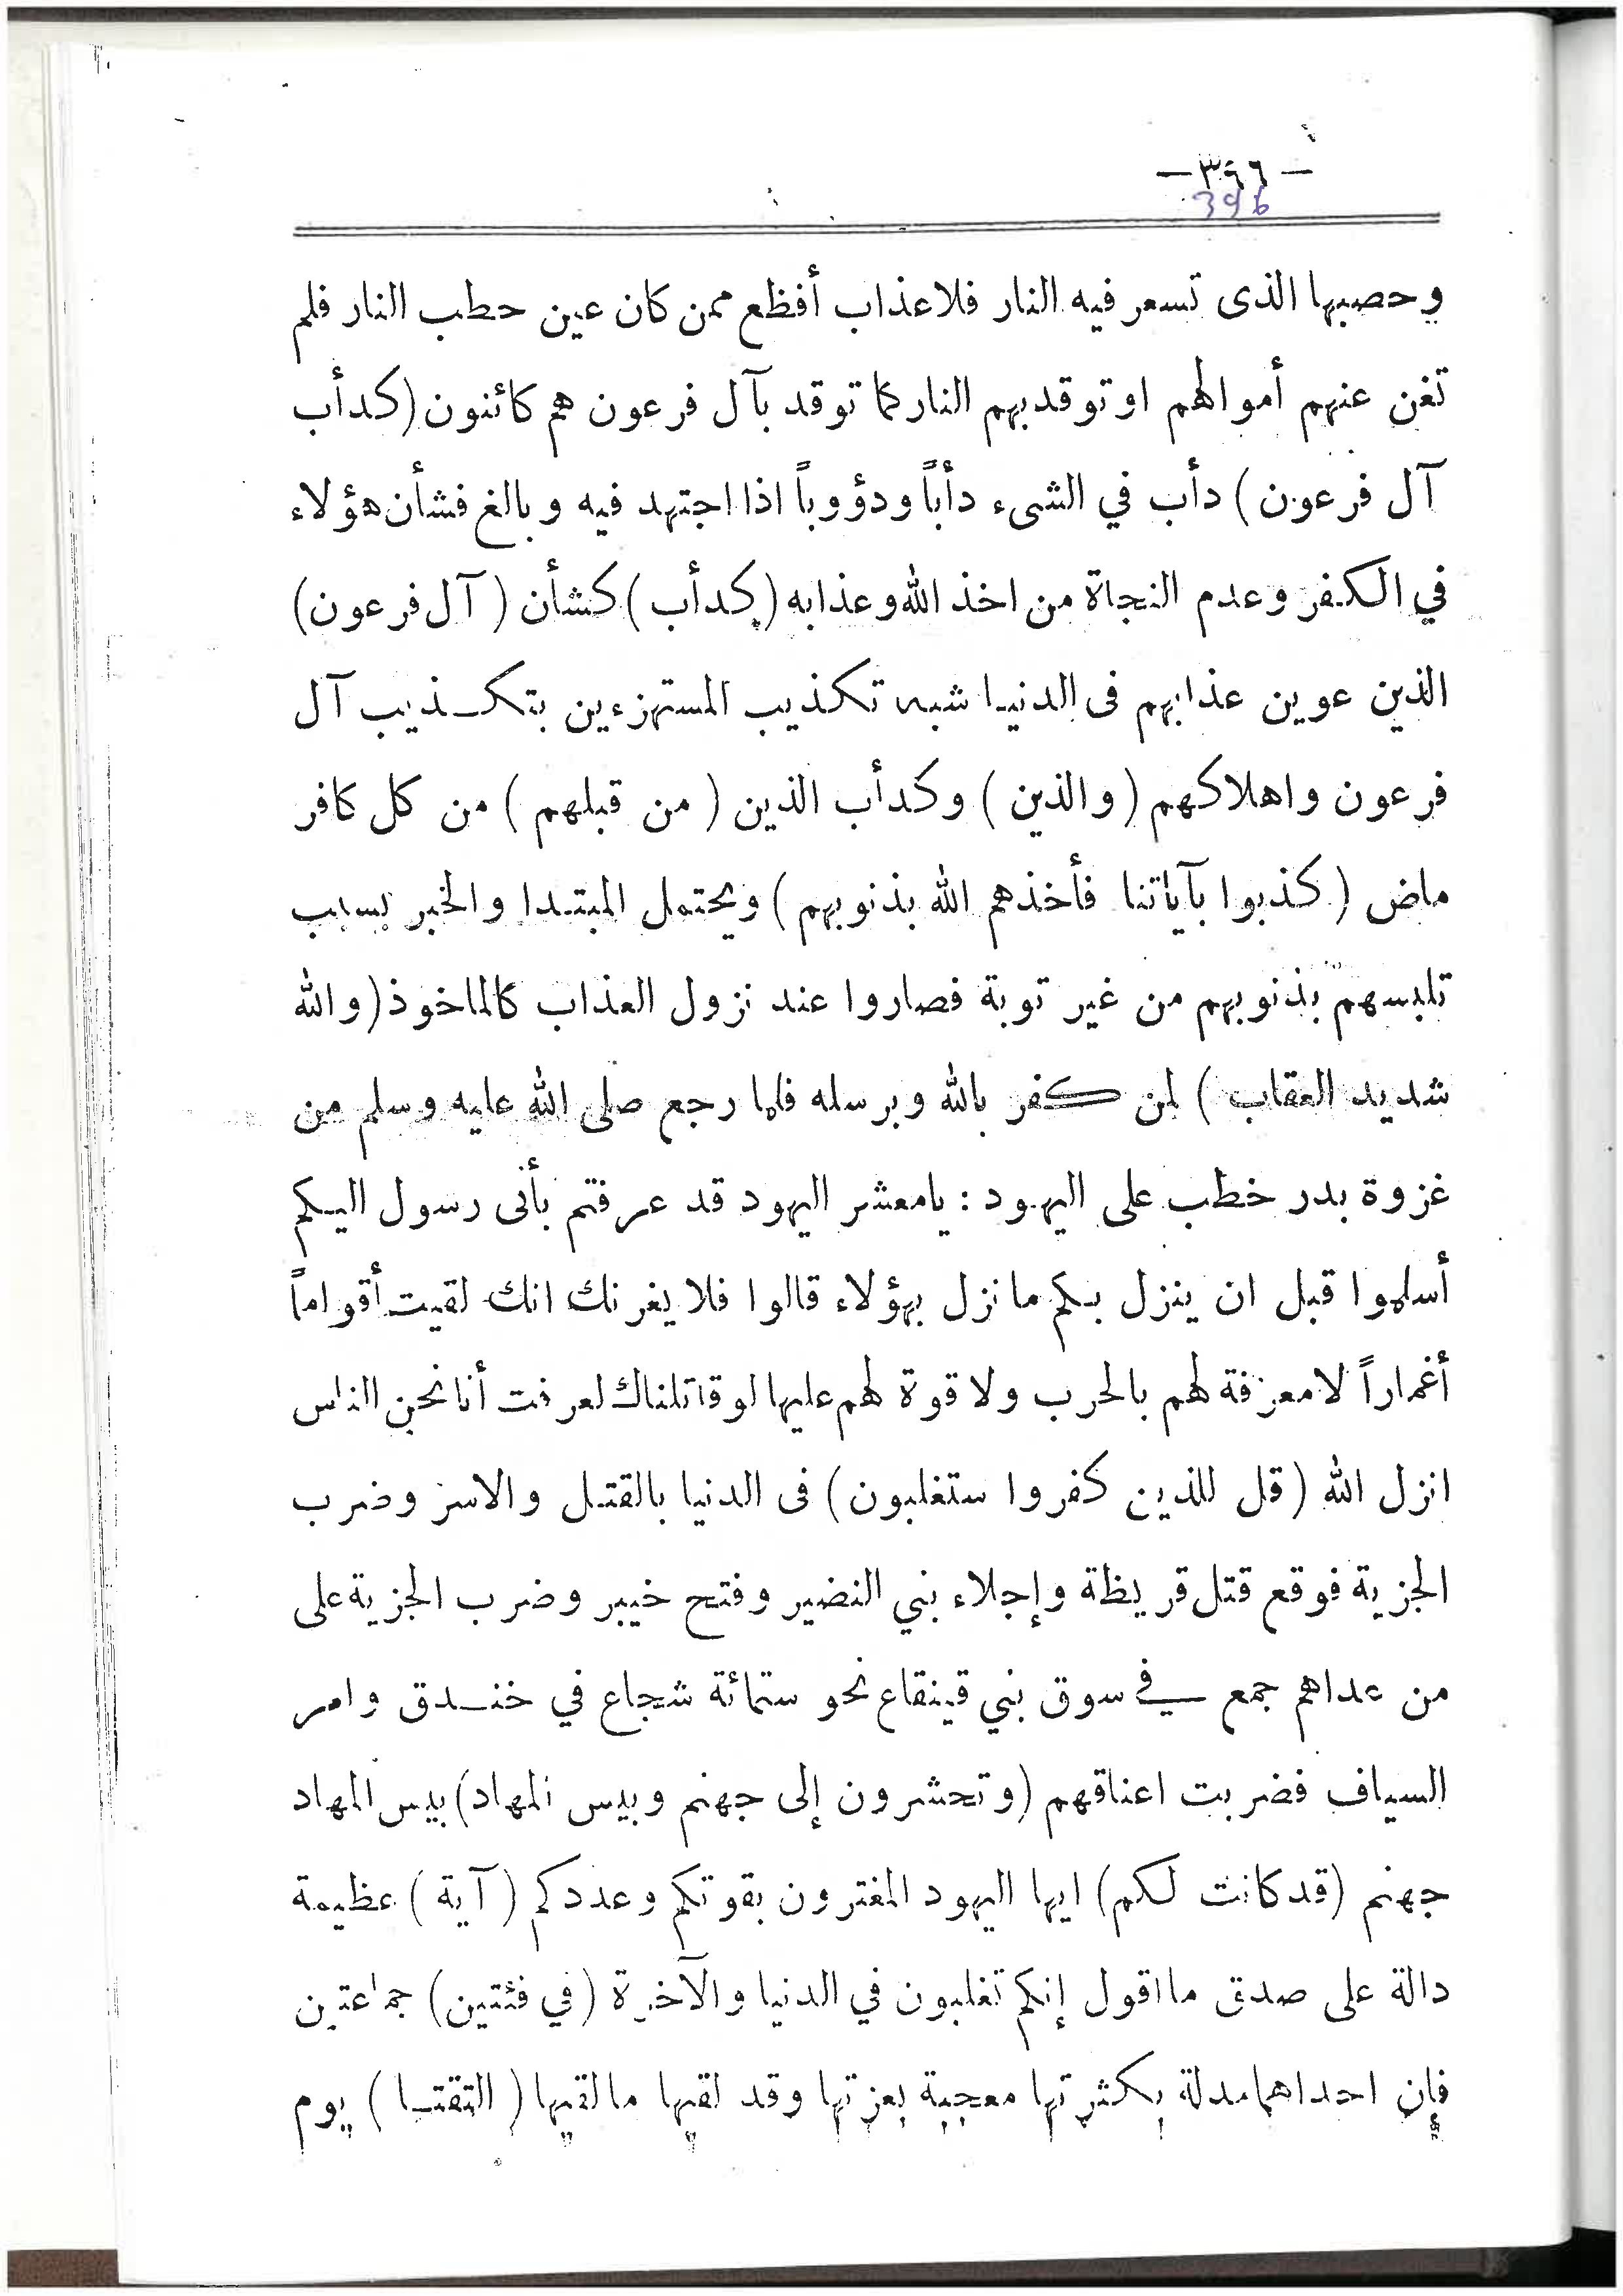 — ٣٩٦ —
396
وحصبها الذى تسعر فيه النار فلاعذاب أفظع ممن كان عين حطب النار فلم
تغن عنهم أموالهم اوتوقدبهم النار كما توقد بآل فرعون هم كائنون (كدأب
آل فرعون) دأب في الشىء دأباً ودؤوباً اذا اجتهد فيه وبالغ فشأن هؤلاء
في الكفر وعدم النجاة من اخذ الله وعذابه (كدأب) كشأن (آل فرعون)
الذين عوين عذابهم فى الدنيا شبه تكذيب المستهزءين بتكذيب آل
فرعون واهلاكهم (والذين) وكدأب الذين (من قبلهم) من كل كافر
ماض (كذبوا بآياتنا فأخذهم الله بذنوبهم) ويحتمل المبتدا والخبر بسبب
تلبسهم بذنوبهم من غير توبة فصاروا عند نزول العذاب كالماخوذ (والله
شديد العقاب) لمن كفر بالله وبرسله فلما رجع صلى الله عليه وسلم من
غزوة بدر خطب على اليهود : يامعشر اليهود قد عرفتم بأنى رسول اليكم
أسلموا قبل ان ينزل بكم مانزل بهؤلاء قالوا فلا يغرنك انك لقيت أقواماً
أغماراً لامعرفة لهم بالحرب ولا قوة لهم عليها لوقاتلناك لعرفت أنا نحن الناس
انزل الله (قل للذين كفروا ستغلبون) فى الدنيا بالقتل والاسر وضرب
الجزية فوقع قتل قريظة وإجلاء بني النضير وفتح خيبر وضرب الجزية على
من عداهم جمع في سوق بني قينقاع نحو ستمائة شجاع في خندق وامر
السياف فضربت اعناقهم (وتحشرون إلى جهنم وبيس المهاد) بيس المهاد
جهنم (قد كانت لكم) ايها اليهود المغترون بقوتكم وعددكم (آية) عظيمة
دالة على صدق مااقول إنكم تغلبون في الدنيا والآخرة (في فئتين) جماعتين
فإن احداهما مدلة بكثرتها معجبة بعزتها وقد لقيها مالقيها (التقتا) يوم